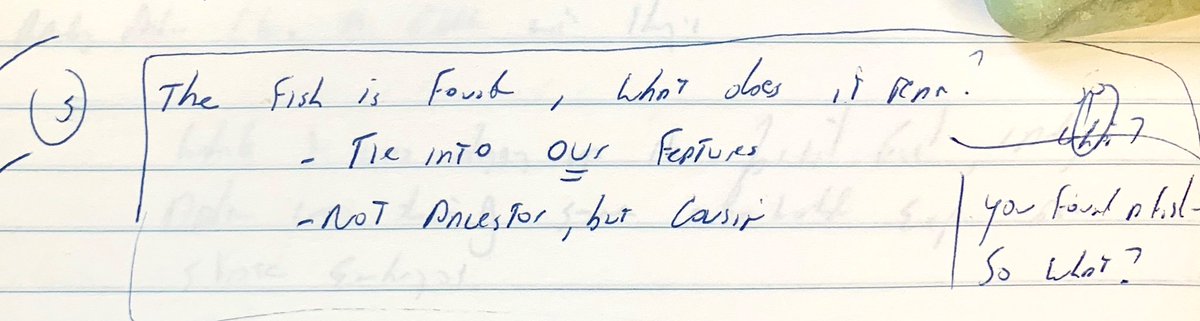 5
The Fish is Found, What does it mean?
- Tie into OUr Features
- Not Ancestor, but Cousin
you found a fish -
So what?